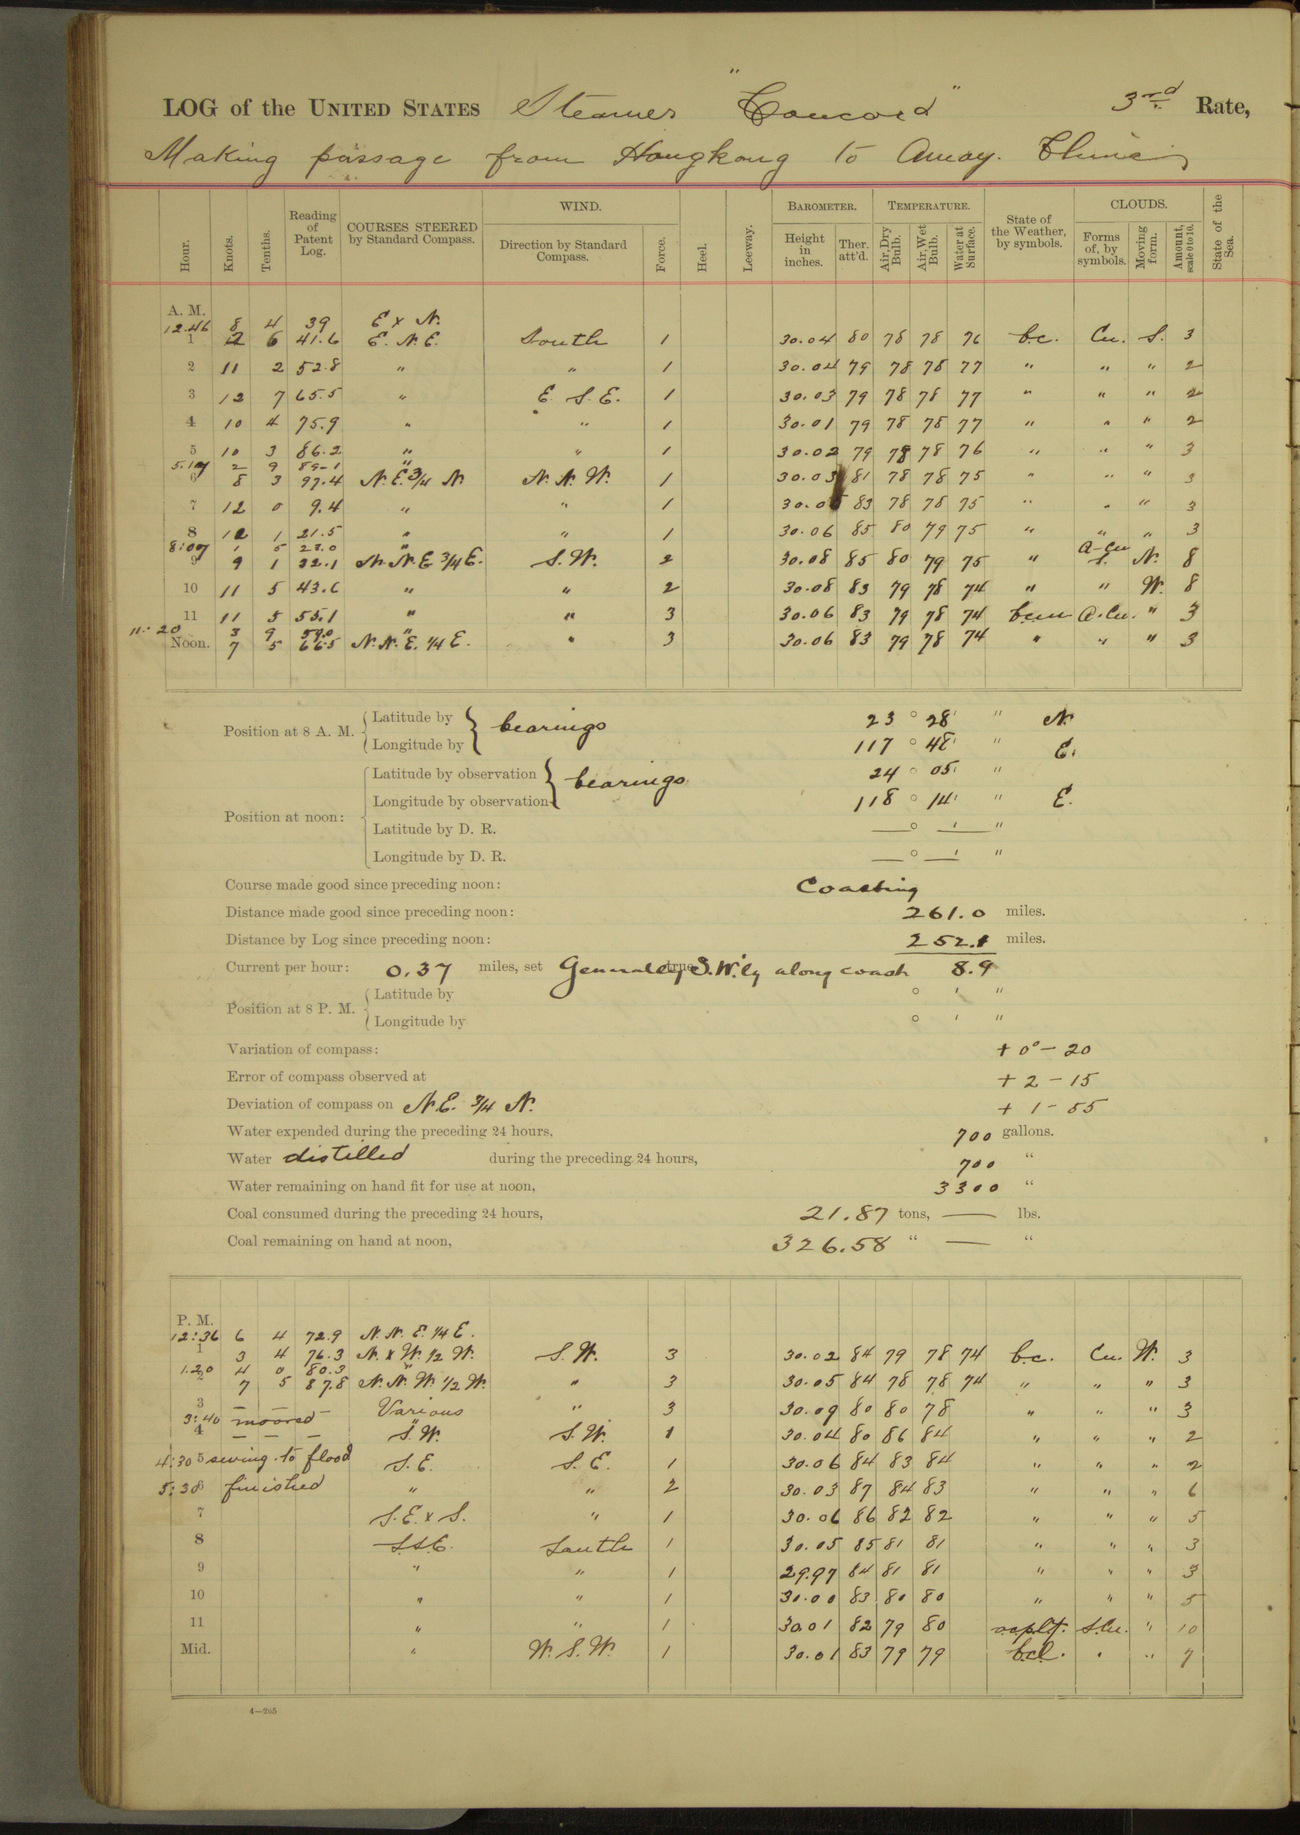 LOG of the UNITED STATES Steamer "Concord" 3rd Rate,
Making passage from Hongkong to Amoy. China
WIND. BAROMETER. TEMPERATURE. CLOUDS.
Hour. Knots. Tenths. Reading of Patent Log. COURSES STEERED by Standard Compass. Direction by Standard Compass. Force. Heel. Leeway. Height in inches. Ther. att'd. Air, Dry Bulb. Air, Wet Bulb. Water at Surface. State of the Weather, by symbols. Forms of, by symbols. Moving form. Amount, scale 0 to 10. State of the Sea.
A. M.
12.46 8 4 39 E x N.
1 2 6 41.6 E. N. E. South 1 30.04 80 78 78 76 b.c. Cu. S. 3
2 11 2 52.8 " " 1 30.04 79 78 78 77 " " " 2
3 12 7 65.5 " E. S. E. 1 30.03 79 78 78 77 " " " 2
4 10 4 75.9 " " 1 30.01 79 78 78 77 " " " 2
5 10 3 86.2 " " 1 30.02 79 78 78 76 " " " 3
5.17 2 9 89-1 "
6 8 3 97.4 N. E 3/4 N N. N. W. 1 30.03 81 78 78 75 " " " 3
7 12 0 9.4 " " 1 30.05 83 78 78 75 " " " 3
8 12 1 21.5 " " 1 30.06 85 80 79 75 " " " 3
8:07 1 5 23.0 "
9 9 1 32.1 N. N. E 3/4 E. S. W. 2 30.08 85 80 79 75 " A-Cu S. N. 8
10 11 5 43.6 " " 2 30.08 83 79 78 74 " " W. 8
11 11 5 55.1 " " 3 30.06 83 79 78 74 bcm A. Cu. " 3
11:20 3 9 59.0 "
Noon. 7 5 66.5 N. N. E. 1/4 E. " 3 30.06 83 79 78 74 " " " 3
Position at 8 A. M. Latitude by bearings 23 ° 28 ' " N
Longitude by 117 ° 48 ' " E.
Position at noon: Latitude by observation bearings 24 ° 05 ' "
Longitude by observation 118 ° 14 ' " E.
Latitude by D. R. — ° — ' "
Longitude by D. R. — ° — ' "
Course made good since preceding noon: Coasting
Distance made good since preceding noon: 261.0 miles.
Distance by Log since preceding noon: 252.1 miles.
Current per hour: 0.37 miles, set Generally true S. W.'ly along coast 8.9
Position at 8 P. M. Latitude by ° ' "
Longitude by ° ' "
Variation of compass: + 0° - 20
Error of compass observed at + 2 - 15
Deviation of compass on N.E. 3/4 N. + 1 - 55
Water expended during the preceding 24 hours, 700 gallons.
Water distilled during the preceding 24 hours, 700 "
Water remaining on hand fit for use at noon, 3300 "
Coal consumed during the preceding 24 hours, 21.87 tons, — lbs.
Coal remaining on hand at noon, 326.58 " — "
P. M.
12:36 6 4 72.9 N. N. E. 1/4 E.
1 3 4 76.3 N. x W. 1/2 W. S. W. 3 30.02 84 79 78 74 b.c. Cu. W. 3
1.20 4 0 80.3 "
2 7 5 87.8 N. N. W. 1/2 W. " 3 30.05 84 78 78 74 " " " 3
3 — — — Various " 3 30.09 80 80 78 " " " 3
3:40 moored "
4 — — — S. W. S. W. 1 30.04 80 86 84 " " " 2
4:30 5 swing to flood S. E. S. E. 1 30.06 84 83 84 " " " 2
5:30 6 finished " " 2 30.03 87 84 83 " " " 6
7 S. E. x S. " 1 30.06 86 82 82 " " " 5
8 S.S.E. South 1 30.05 85 81 81 " " " 3
9 " " 1 29.97 84 81 81 " " " 3
10 " " 1 30.00 83 80 80 " " " 5
11 " " 1 30.01 82 79 80 S.Cu. " 10
Mid. " W. S. W. 1 30.01 83 79 79 b.c.l. " " 7
4—205